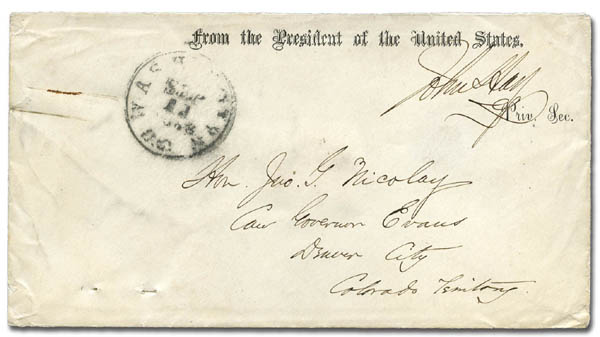 From the President of the United States.
John Hay
Priv. Sec.
WASHINGTON
SEP
11
Hon. Jno. G. Nicolay
Care Governor Evans
Denver City
Colorado Territory.